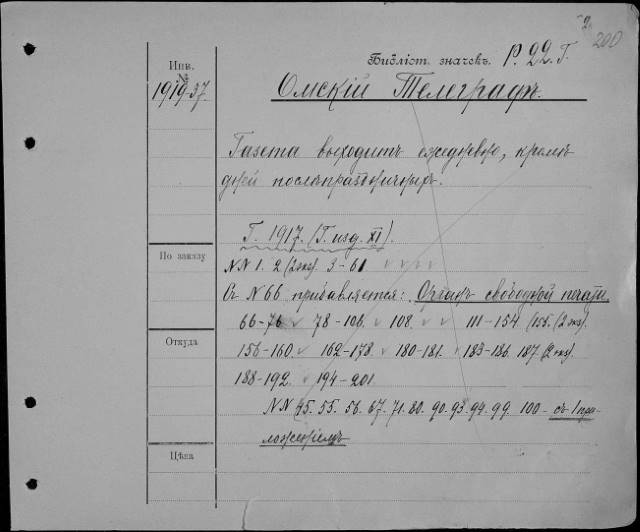 200
Библіот. значекъ. Р. 22. Г.
Инв.
№
1919-37.
Омскій Телеграфъ.
Газета выходитъ ежедневно, кромѣ
дней послѣпраздничныхъ.
Г. 1917. (Г. изд. XI).
По заказу
NN 1. 2 (2 экз). 3-61
Съ N 66 прибавляется: Органъ свободной печати.
66-76 78-106. 108. 111-154. (155. (2 экз).
Откуда
156-160. 162-178. 180-181. 183-186. 187 (2 экз).
188-192. 194-201.
NN 45. 55. 56. 67. 71. 80. 90. 93. 94. 99. 100 - съ 1 при-
ложеніемъ
Цѣна